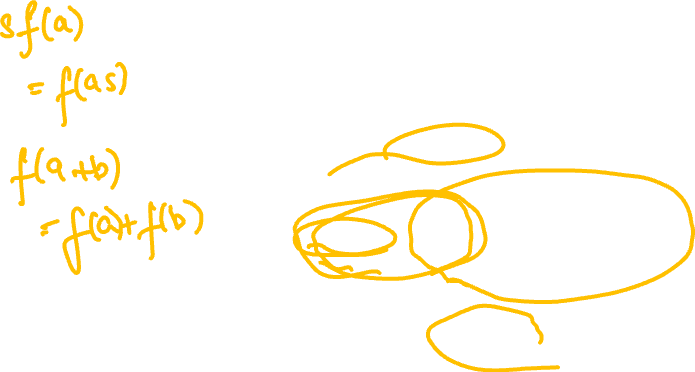 sf(a)
= f(as)
f(a+b)
= f(a)+f(b)